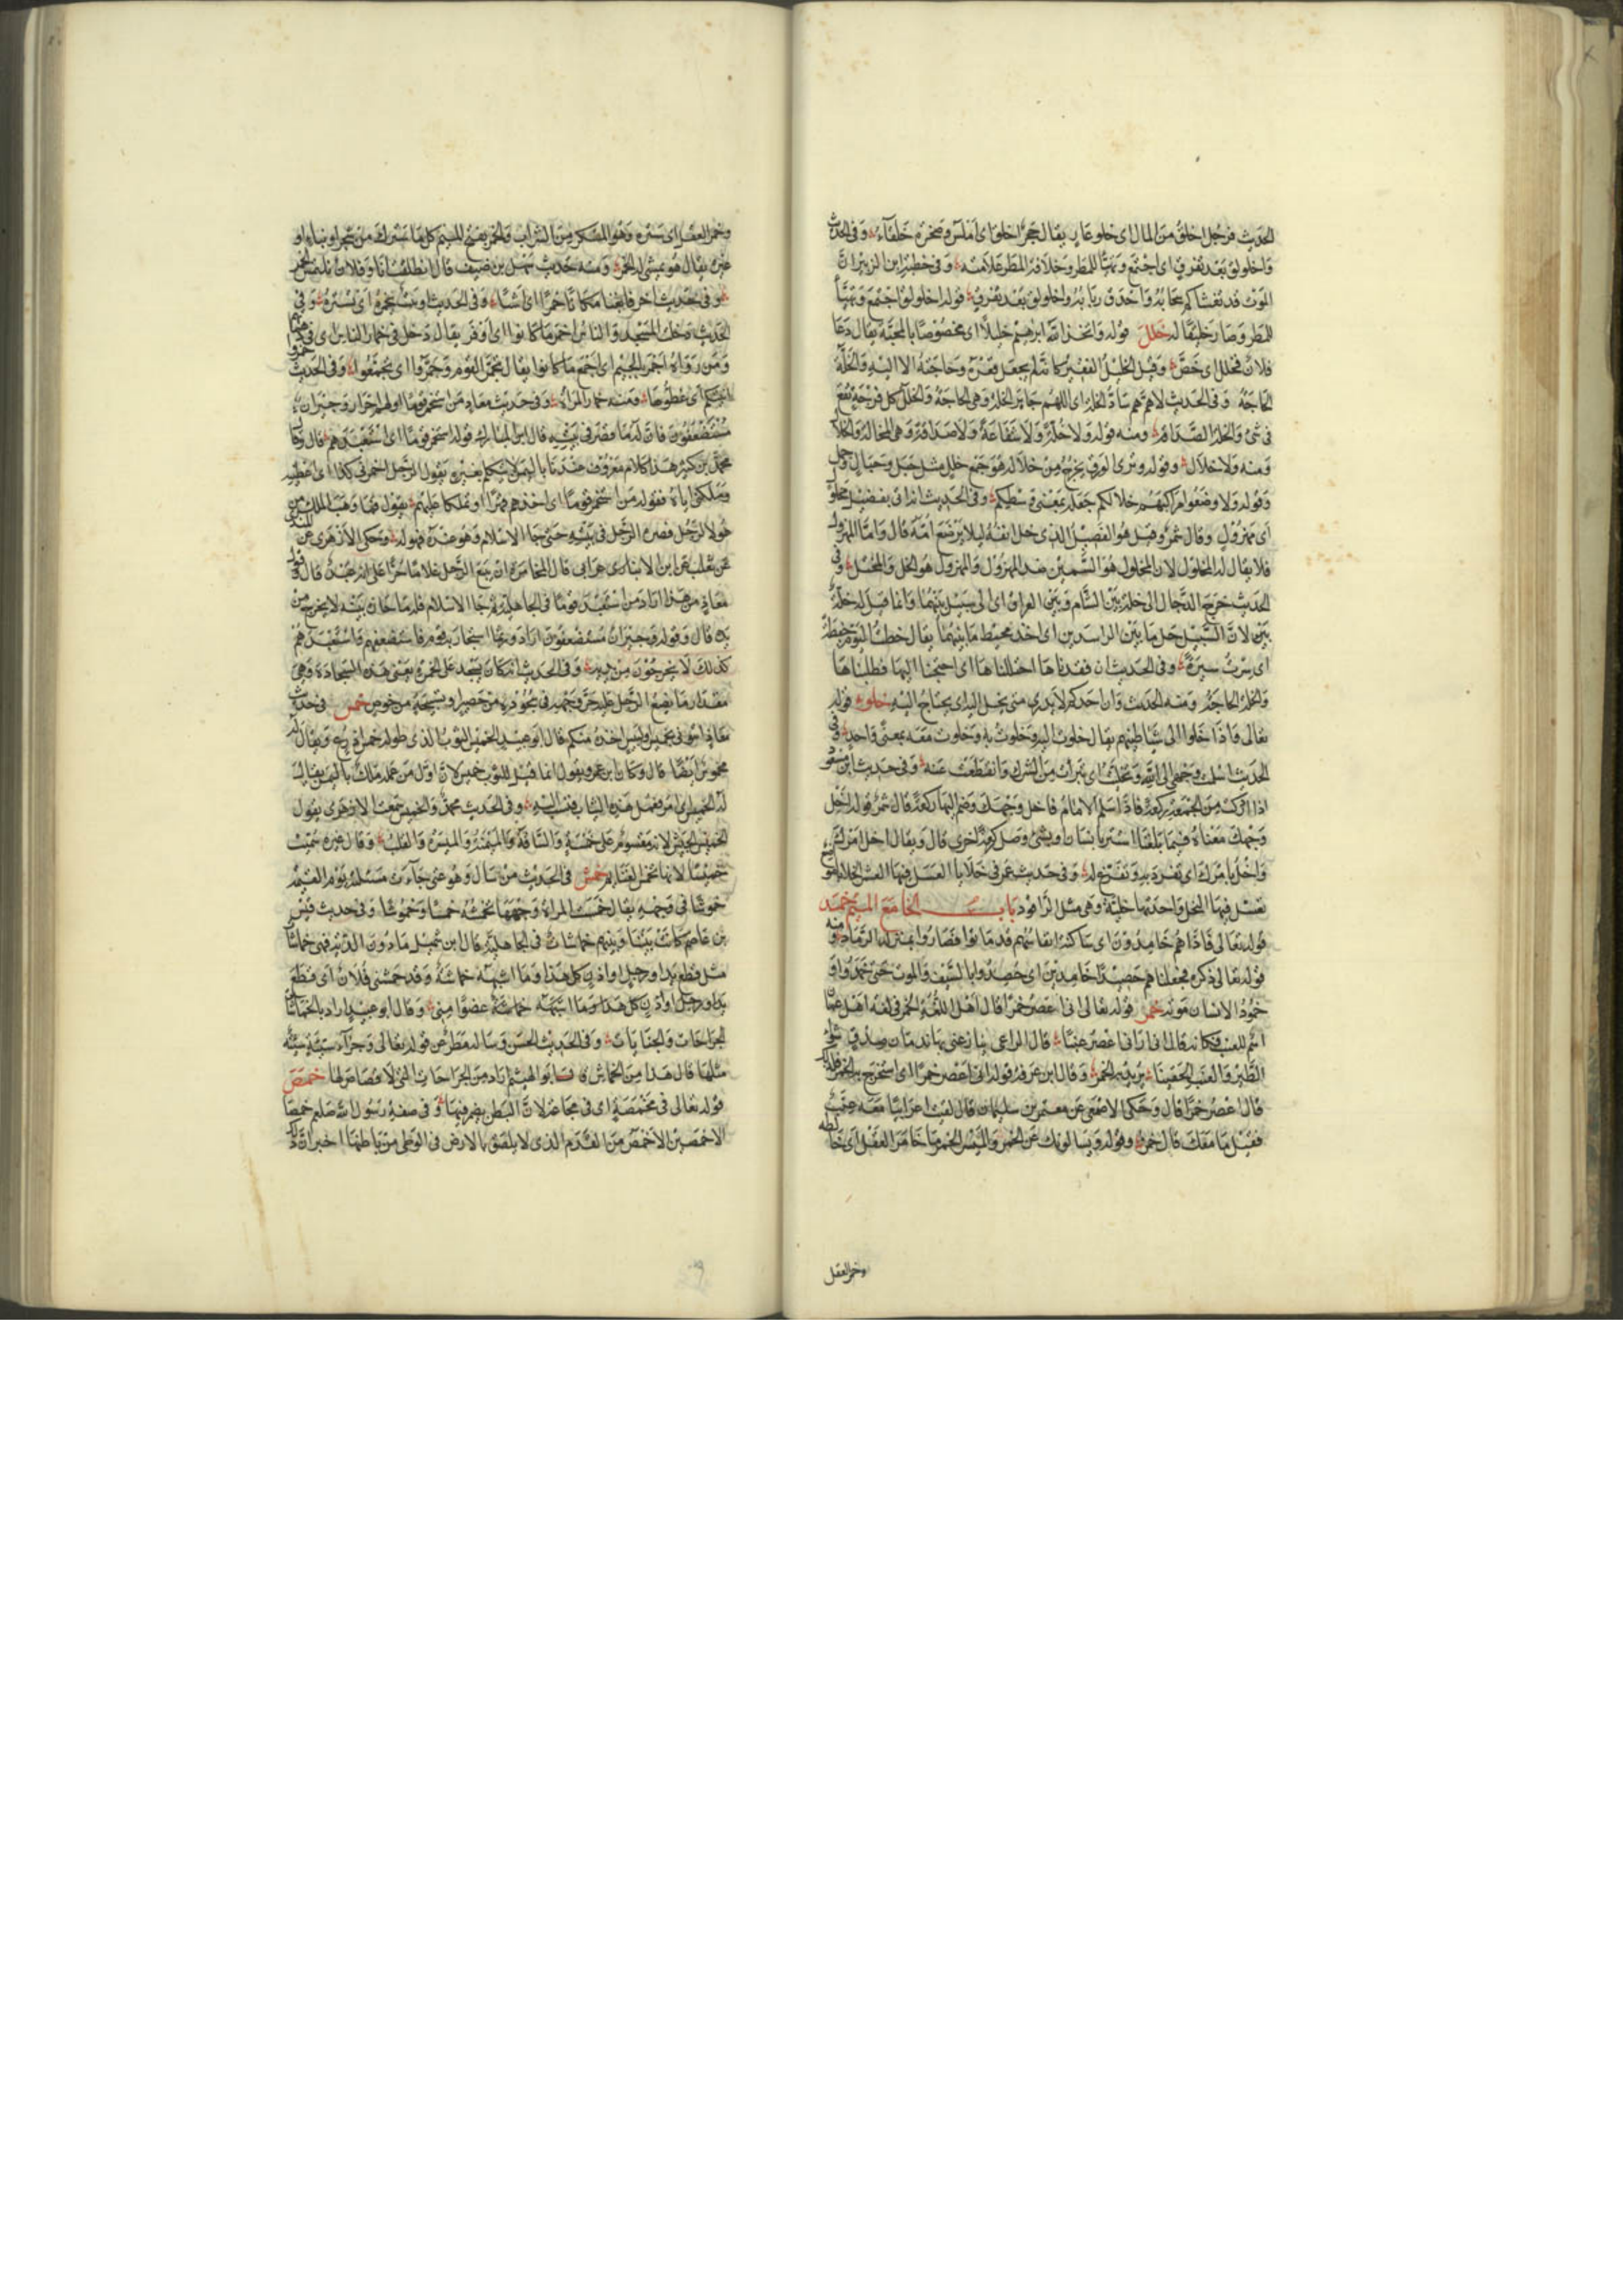 الحديث فرجل اخلق من المال اى خلو عار يقال حجر اخلق اى املس وصخرة خلقاء وفى الحديث
واخلولق بعد تفرق اى اجتمع وتهيّا للمطر وخلاقة المطر علامته وفى خطبة ابن الزبير انّ
الموت قد تغشاكم سحابه واحدق ربابه واخلولق بعد تفرق قوله اخلولق اجتمع وتهيّأ
للمطر وصار خليقا له خلل قوله واتخذ الله ابرهيم خليلا اى مخصوصا بالمحبّة يقال دعا
فلان فخلل اى خصّ وقيل الخليل الفقير كانه لم يجعل فقره وحاجته الا اليه والخلّة
الحاجة وفى الحديث اللهم سادّ الخلة اى اللهم جابر الخلة وهى الحاجة والخلل كل فرجة تقع
فى شئ والخلة الصداقة ومنه قوله ولا خلّة ولا شفاعة ولا صداقة وهى المخالة والخلال
ومنه ولا خلال وقوله وترى الودق يخرج من خلاله هو جمع خلل مثل جبل وجبال
وقوله ولاوضعوا خلالكم جعله بمعنى وسطكم وفى الحديث انه اتى بفصيل مخلول
اى مهزول وقال شمر وقيل هو الفصيل الذى خل انفه ليلا يرضع امه قال واما المهزول
فلا يقال له المخلول لان المخلول هو السّمين ضد المهزول والمهزول هو الخل والمختل وفى
الحديث خرج الدّجال الى خلة بين الشام وبين العراق اى الى سبيل بينهما وانما قيل له خلّة
بين لانّ السّبيل خل ما بين البلدين اى اخذ مخيط ما بينهما يقال خطت اليوم خيطة
اى سرت سيرة وفى الحديث ان فقدناها اختللناها اى احتجنا اليها فطلبناها
والخلة الحاجة ومنه الحديث وان احدكم لا يدرى متى يختل اليه اى يحتاج اليه خلو قوله
تعالى واذا خلوا الى شياطينهم يقال خلوت اليه وخلوت به وخلوت معه بمعنى واحد وفى
الحديث اسلمت وجهى الى الله وتخلّيت اى تبرأت من الشرك وانقطعت عنه وفى حديث ابن مسعود
اذا ادركت من الجمعة ركعة فاذا سلم الامام فاخل وجهك وضم اليها ركعة قال شمر قوله اخل
وجهك معناه فيما بلغنا استر بانسان او بشئ وصل ركعة اخرى قال ويقال اخل امرك
واخل بامرك اى تفرد به وتفرّغ له وفى حديث عمر فى خلايا العسل فيها العشر الخلايا مواضع
تعسل فيها النحل واحدتها خليّة وهى مثل الراقود باب الخا مع الميم خمد
قوله تعالى فاذا هم خامدون اى ساكنون انفاسهم قد ماتوا فصاروا بمنزلة الرّماد ومنه
قوله تعالى ذكره فجعلناهم حصيدا خامدين اى حصدوا بالسّيف والموت حتى خمدوا و
خمود الانسان موته خمر قوله تعالى انى اعصر خمرا قال اهل اللغة الخمر فى لغة اهل عمان
اسم للعنب فكانه قال انى ارانى اعصر عنبا قال الراعى ينازعنى بها ندمان صدق شواء
الطّير والعنب الحقينا يريد به الخمر وقال ابن عرفة قوله انى اعصر خمرا اى استخرج به الخمر
قال اعصر خمرا قال وحكى الاصمعى عن معتمر بن سليمان قال لقيت اعرابيا معه عنب
فقيل ما معك قال خمر وقوله ويسالونك عن الخمر والميسر الخمر ما خامر العقل اى خالطه
وخمر العقل
وخمر العقل اى ستره وهو المسكر من الشراب والخمر بفتح الميم كل ما سترك من شجر او بناء او
غيره يقال هو يمشى له الخمر ومنه حديث سهل بن ضيف قال انطلقت انا وفلان نلتمس الخمر
وفى حديث اخر فابغنا مكانا خمرا اى شبا وفى الحديث او بيت يخمره اى يستره وفى
الحديث دخلت المسجد والناس اخمر ما كانوا اى اوفر يقال دخل فى خمار الناس اى فى دهمائهم
ومن رواه اجمر بالجيم اى اجمع ما كانوا يقال تجمر القوم وجمروا اى تجمعوا وفى الحديث خمروا
انيتكم اى غطوها ومنه خمار المراة وفى حديث معاذ من استخمر قوما اولهم احرار وجيران
مستضعفون فانّ له ما قصر فى بيته قال ابن المبارك قوله استخمر قوما اى استعبدهم قال وقال
محمد بن كثير هذا كلام معروف عندنا باليمن لا يتكلم بغيره ويقول الرجل اخمرنى كذا اى اعطنيه
وملكنى اياه فقوله من استخمر قوما اى اخذهم قهرا او تملكا عليهم يقول فما وهب الملك من
هولا لرجل فقصره الرجل فى بيته حتى جا الاسلام وهو عنده فهو له وحكى الازهرى عن المنذرى
عن ثعلب عن ابن الاعرابى قال المخامرة ان يبيع الرجل غلاما حرا على انه عبده قال وقول
معاذ من هذا اراد من استعبد قوما فى الجاهلية ثم جا الاسلام فله ما حازه بيته لا يخرج من
يده قال وقوله وجيران مستضعفون اراد ربما استجار به قوم فاستضعفهم واستعبدهم
كذلك لا يخرجون من يده وفى الحديث انه كان يسجد على الخمرة يعنى هذه السجادة وهى
مقدار ما يضع الرّجل عليه حرّ وجهه فى سجوده من حصير او نسيجة من خوص خمس فى حديث
معاذ ائتونى بخميس او لبيس اخذه منكم قال ابو عبيد الخميس الثوب الذى طوله خمس اذرع ويقال له
مخموس ايضا قال وكان ابو عمرو يقول انما قيل للثوب خميس لانّ اول من عمله ملك باليمن يقال
له الخميس امر بعمل هذه الثياب فنسب اليه وفى الحديث محمد والخميس سمعت الازهرى يقول
الخميس الجيش لانه مقسوم على خمسة والساقة والميمنة والميسرة والقلب وقال غيره سميت
خميسا لانها تخمس الغنايم خمش فى الحديث من سال وهو غنى جآءت مسئلته يوم القيمة
خموشا فى وجهه يقال خمشت المراة وجهها تخمشه خمشا وخموشا وفى حديث قيس
بن عاصم كانت بيننا وبينهم خماشات فى الجاهلية قال ابن شميل مادون الدّية فهى خماشات
مثل قطع يد او رجل او اذن كل هذا وما اشبهه خماشة وقد خمشنى فلان اى قطع
يدا او رجل او اذن كل هذا وما اشبهه خماشة عضوا منى وقال ابو عبيد اراد بالخماشات
الجراحات والجنايات وفى الحديث الحسن وساله مطر عن قوله تعالى وجزآء سيّئة سيئة
مثلها قال هذا من الخماش قال ابو الهيثم اراد من الجراحات التى لا قصاص لها خمص
قوله تعالى فى مخمصة اى فى مجاعة لانّ البطن يضمر فيها وفى صفة رسول الله صلعم خمصان
الاخمصين الاخمص من القدم الذى لا يلصق بالارض فى الوطى من باطنها اخبر ان ذلك